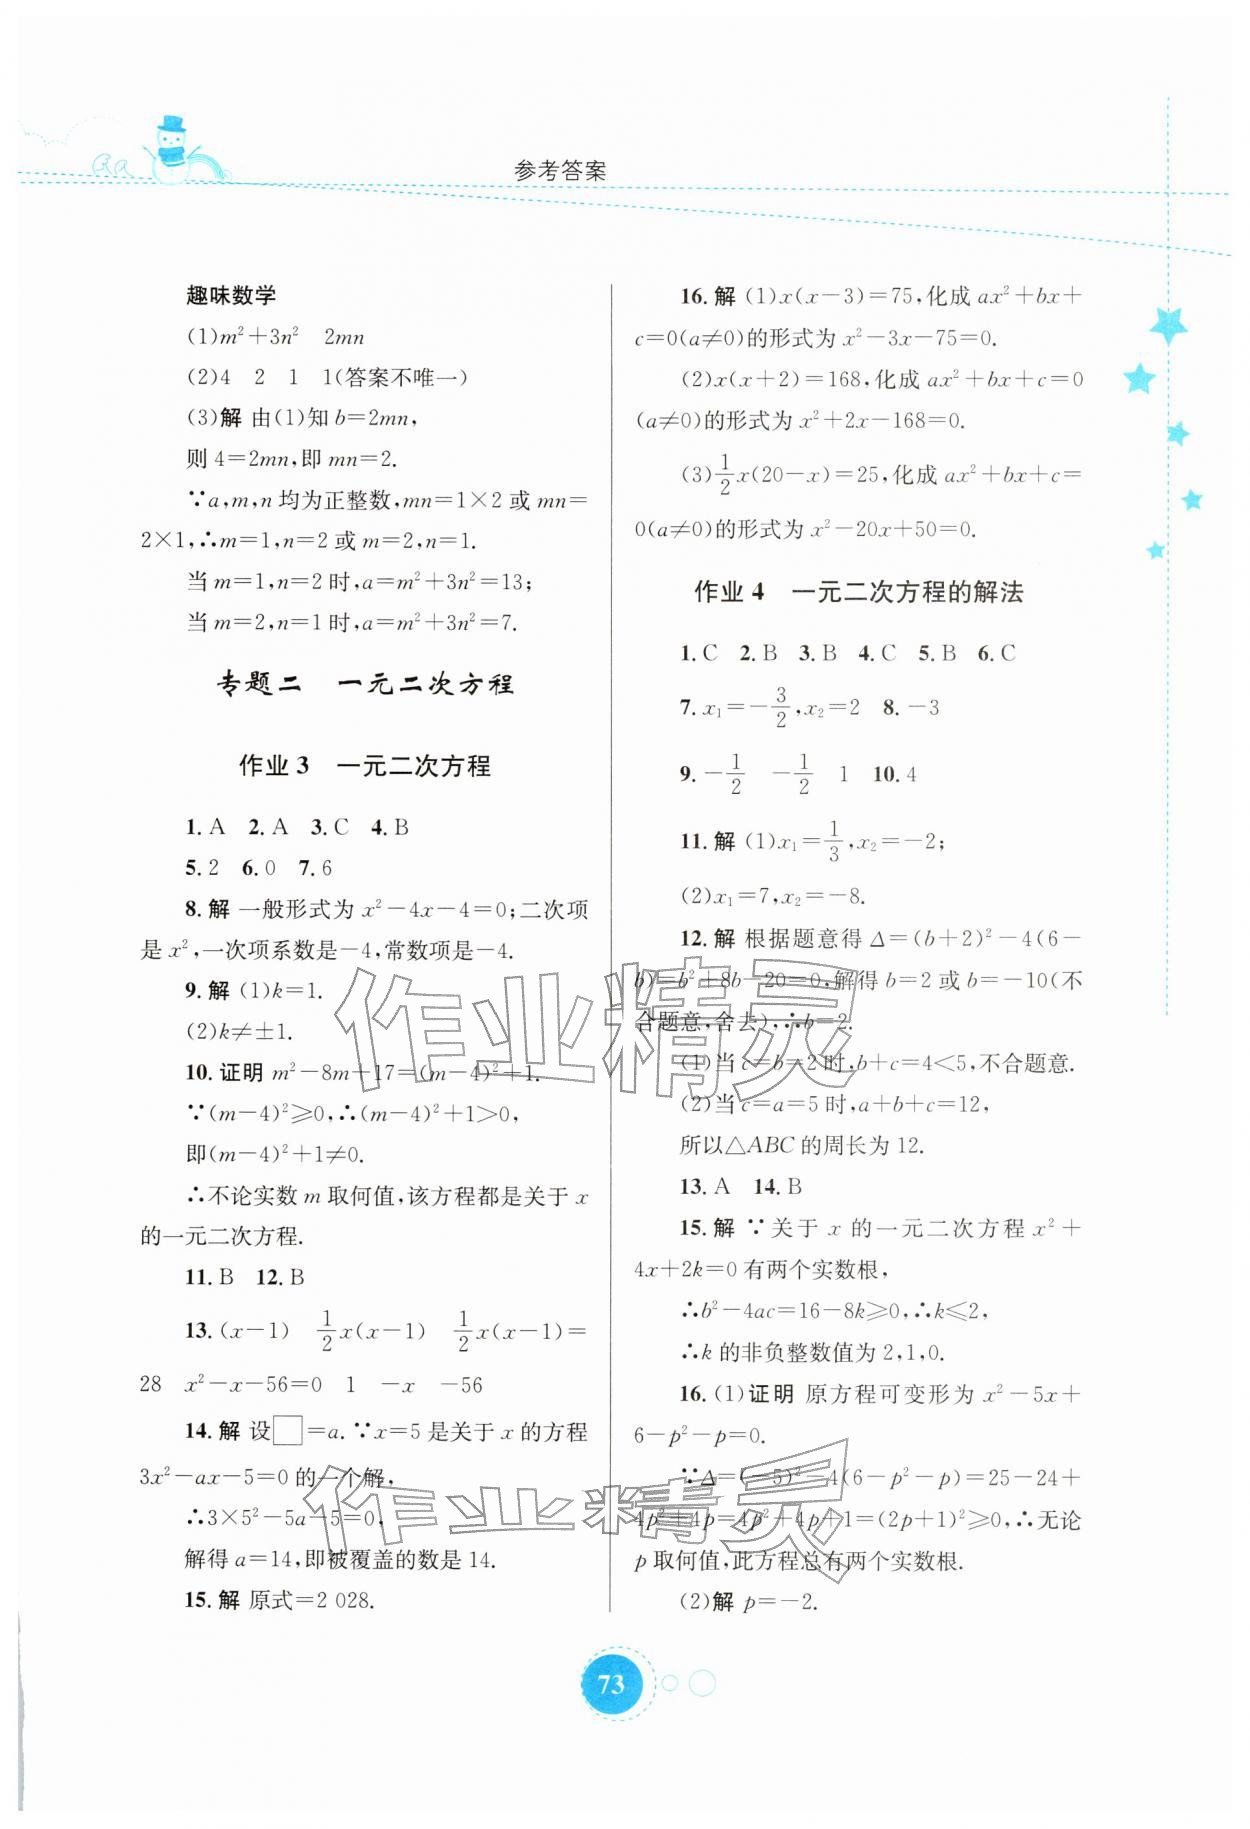 参考答案
趣味数学
(1)m²+3n²　2mn
(2)4　2　1　1(答案不唯一)
(3)解 由(1)知 b=2mn,
则 4=2mn,即 mn=2.
∵a,m,n 均为正整数,mn=1×2 或 mn=
2×1,∴m=1,n=2 或 m=2,n=1.
当 m=1,n=2 时,a=m²+3n²=13;
当 m=2,n=1 时,a=m²+3n²=7.
专题二　一元二次方程
作业 3　一元二次方程
1. A　2. A　3. C　4. B
5. 2　6. 0　7. 6
8. 解 一般形式为 x²-4x-4=0;二次项
是 x²,一次项系数是-4,常数项是-4.
9. 解 (1)k=1.
(2)k≠±1.
10. 证明 m²-8m+17=(m-4)²+1.
∵(m-4)²≥0,∴(m-4)²+1>0,
即(m-4)²+1≠0.
∴不论实数 m 取何值,该方程都是关于 x
的一元二次方程.
11. B　12. B
13. (x-1)　1/2x(x-1)　1/2x(x-1)=
28　x²-x-56=0　1　-x　-56
14. 解 设□=a. ∵x=5 是关于 x 的方程
3x²-ax-5=0 的一个解,
∴3×5²-5a-5=0,
解得 a=14,即被覆盖的数是 14.
15. 解 原式=2 028.
16. 解 (1)x(x-3)=75,化成 ax²+bx+
c=0(a≠0)的形式为 x²-3x-75=0.
(2)x(x+2)=168,化成 ax²+bx+c=0
(a≠0)的形式为 x²+2x-168=0.
(3)1/2x(20-x)=25,化成 ax²+bx+c=
0(a≠0)的形式为 x²-20x+50=0.
作业 4　一元二次方程的解法
1. C　2. B　3. B　4. C　5. B　6. C
7. x₁=-3/2,x₂=2　8. -3
9. -1/2　-1/2　1　10. 4
11. 解 (1)x₁=1/3,x₂=-2;
(2)x₁=7,x₂=-8.
12. 解 根据题意得 Δ=(b+2)²-4(6-
b)=b²+8b-20=0,解得 b=2 或 b=-10(不
合题意,舍去),∴b=2.
(1)当 c=b=2 时,b+c=4<5,不合题意.
(2)当 c=a=5 时,a+b+c=12,
所以△ABC 的周长为 12.
13. A　14. B
15. 解 ∵关于 x 的一元二次方程 x²+
4x+2k=0 有两个实数根,
∴b²-4ac=16-8k≥0,∴k≤2,
∴k 的非负整数值为 2,1,0.
16. (1)证明 原方程可变形为 x²-5x+
6-p²-p=0.
∵Δ=(-5)²-4(6-p²-p)=25-24+
4p²+4p=4p²+4p+1=(2p+1)²≥0,∴无论
p 取何值,此方程总有两个实数根.
(2)解 p=-2.
作业精灵
作业精灵
73